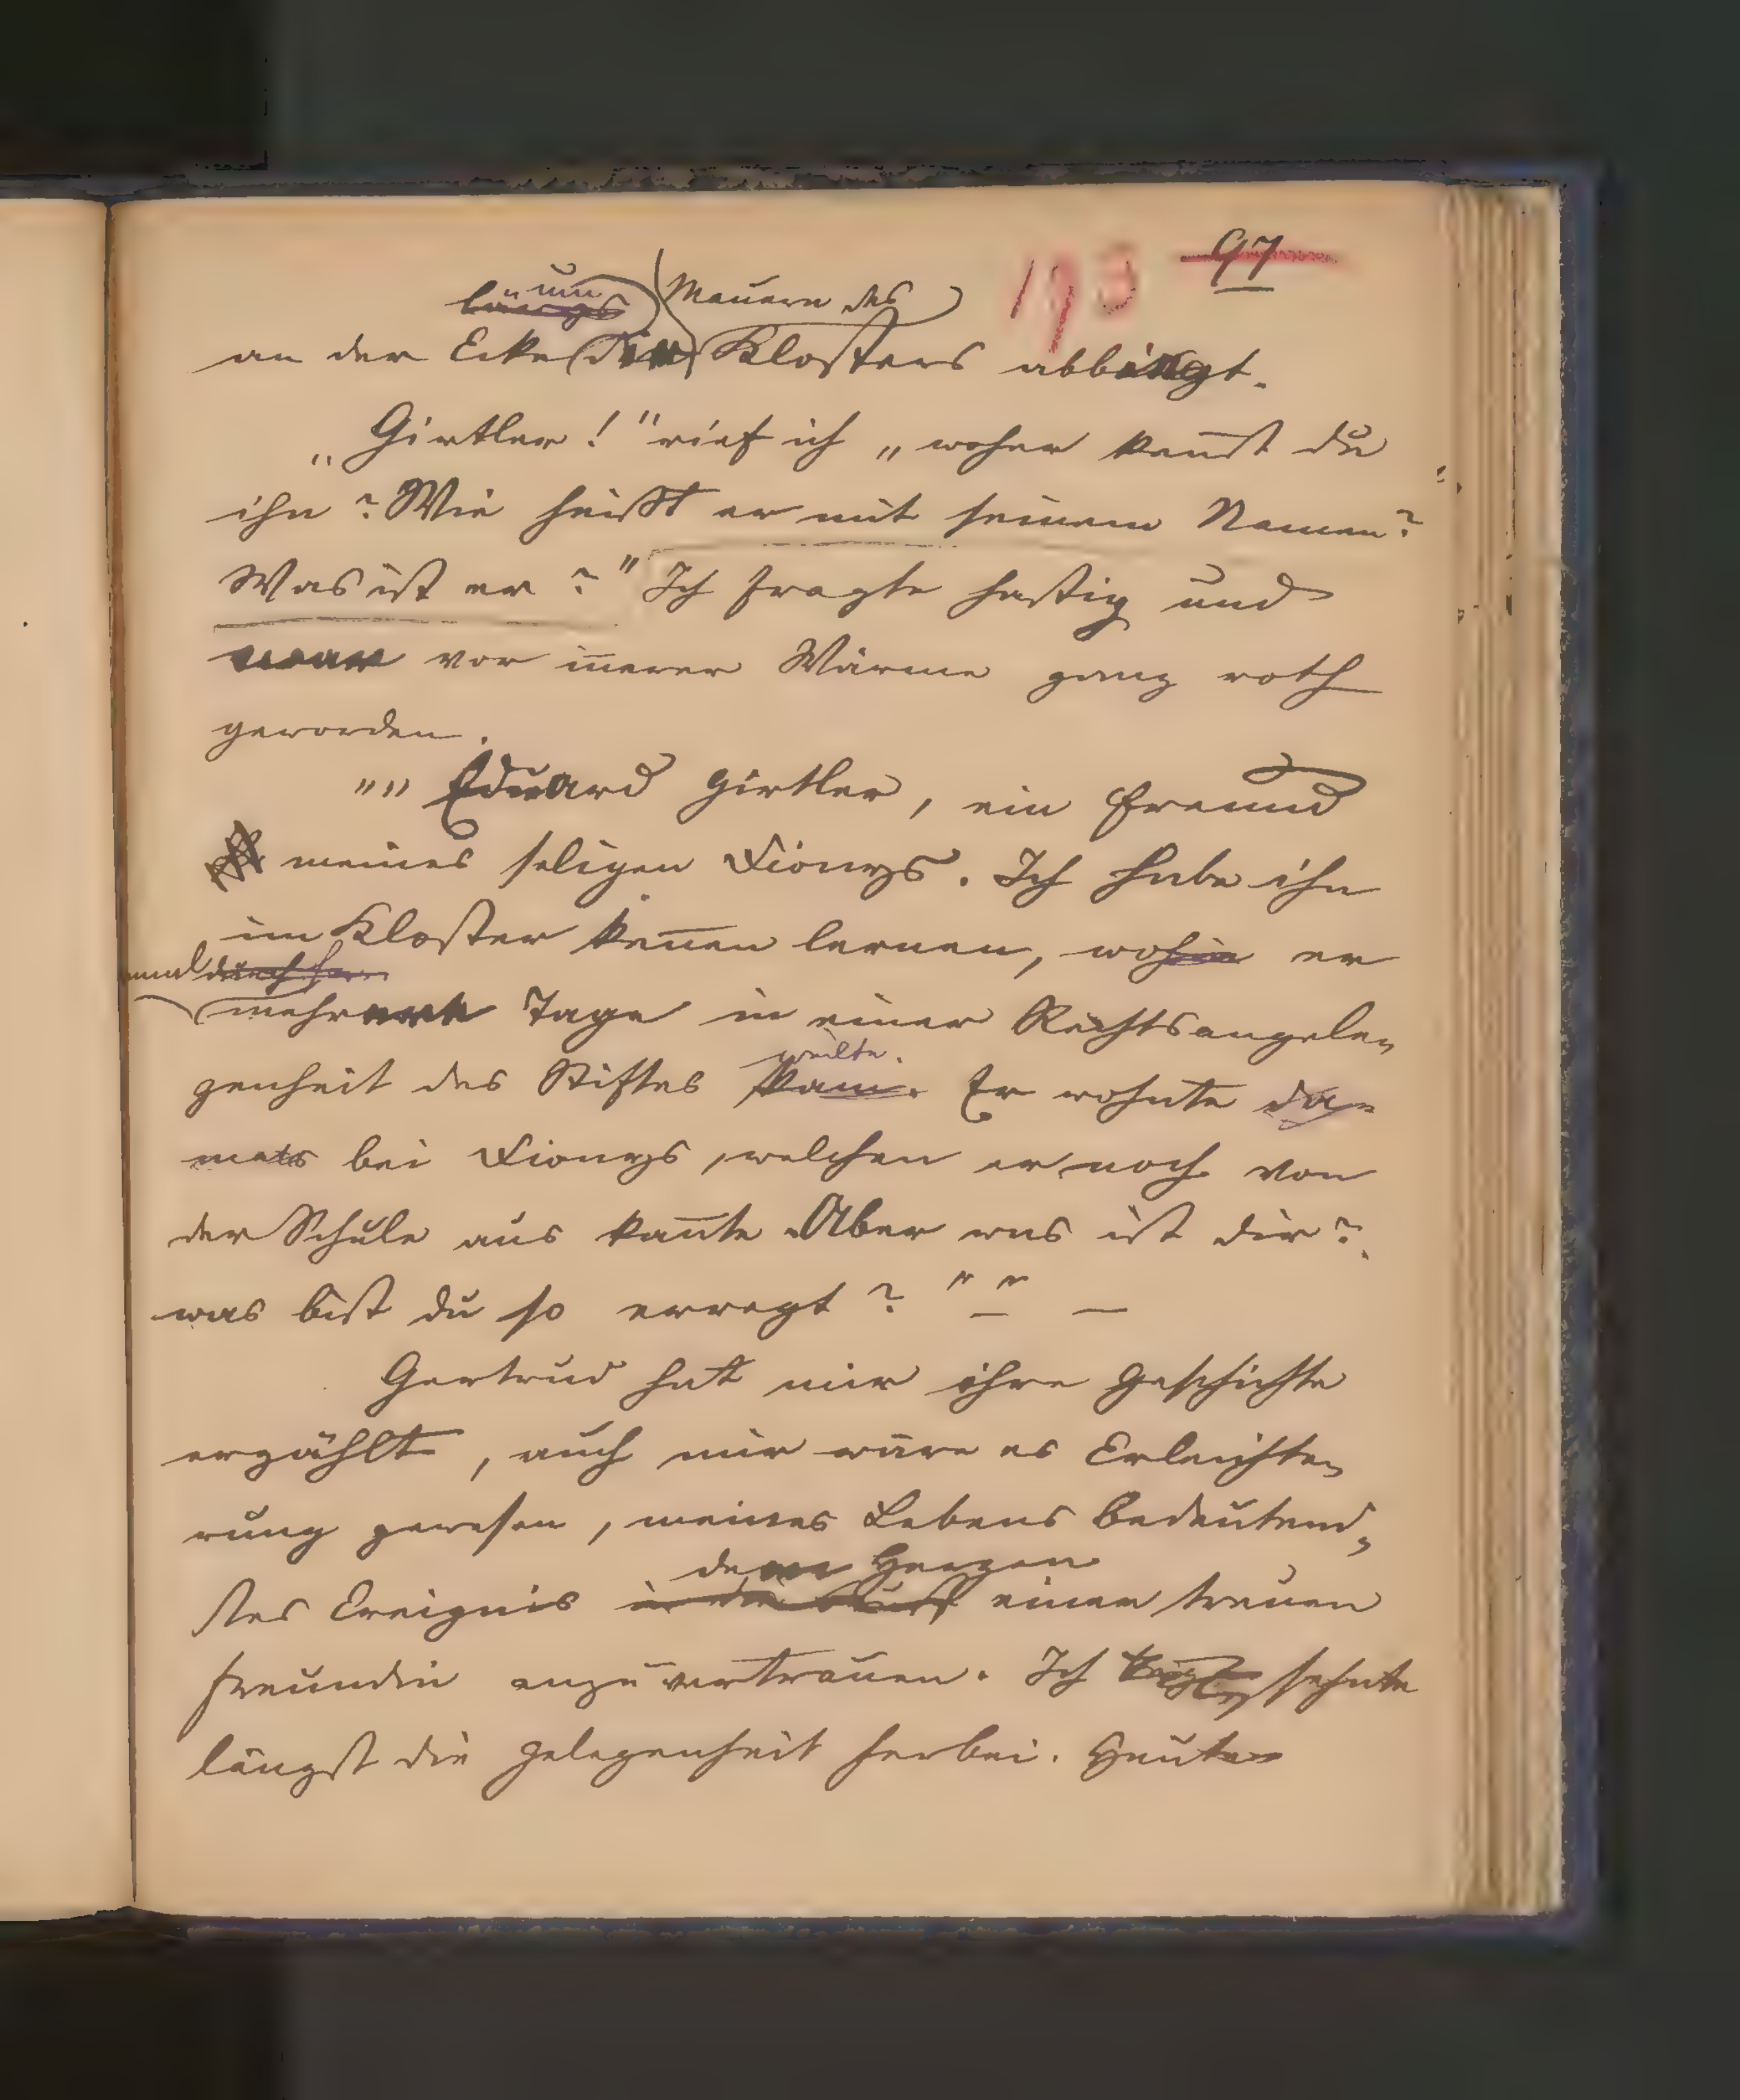 193 97
längs um Mauern des
an der Ecke die Klosters abbiegt.
„Girtler!" rief ich „woher kenn̄st du
ihn? Wie heißt er mit seinem Namen?
Was ist er?" Ich fragte hastig und
war vor iñerer Wärme ganz roth
geworden.
„„Eduard Girtler, ein Freund
meines seligen Dionys. Ich habe ihn
im Kloster keñen lernen, wohin er
einmal durch
mehrere Tage in einer Rechtsangele„
weilte.
genheit des Stiftes kam. Er wohnte da=
mals bei Dionys, welchen er noch von
der Schule aus kañte. Aber was ist dir?
was bist du so erregt?"" —
Gertrud hat mir ihre Geschichte
erzählt, auch mir wäre es Erleichte„
rung gewesen, meines Lebens bedeutend„
dem Herzen
stes Ereignis in die Brust einer treuen
Freundin anzuvertrauen. Ich sehnte
längst die Gelegenheit herbei. Heute